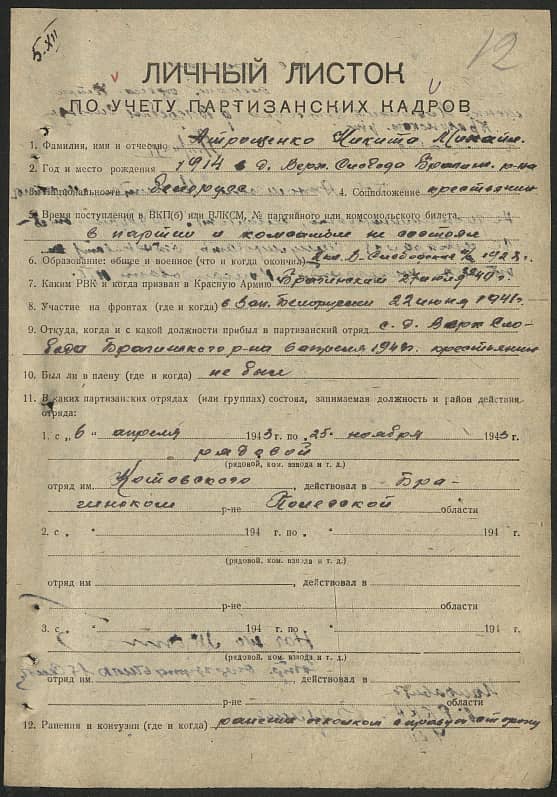 5.XII
12
ЛИЧНЫЙ ЛИСТОК
ПО УЧЕТУ ПАРТИЗАНСКИХ КАДРОВ
1. Фамилия, имя и отчество Атрощенко Никита Михайл.
2. Год и место рождения 1914 в д. Верх. Слобода Брагин. р-на
3. Национальность Белорусс 4. Соцположение крестьянин
5. Время поступления в ВКП(б) или ВЛКСМ, № партийного или комсомольского билета.
в партии и комсомоле не состоял
6. Образование: общее и военное (что и когда окончил) 1928 г.
7. Каким РВК и когда призван в Красную Армию Брагинским 1940 г.
8. Участие на фронтах (где и когда) в Зап. Белоруссии 22 июня 1941 г.
9. Откуда, когда и с какой должности прибыл в партизанский отряд с. д. Верх Сло-
бода Брагинского р-на 6 апреля крестьянин
10. Был ли в плену (где и когда) не был
11. В каких партизанских отрядах (или группах) состоял, занимаемая должность и район действия
отряда:
1. с „6" апреля 1943 г. по „25" ноября 1943 г.
рядовой
(рядовой, ком. взвода и т. д.)
отряд им Котовского, действовал в Бра-
гинском р-не Полесской области
2. с „ " 194 г. по „ " 194 г.
(рядовой, ком. взвода и т. д.)
отряд им , действовал в
р-не области
3. с „ " 194 г. по „ " 194 г.
(рядовой, ком. взвода и т. д.)
отряд им , действовал в
р-не области
12. Ранения и контузии (где и когда) ранения осколком в правую сторону